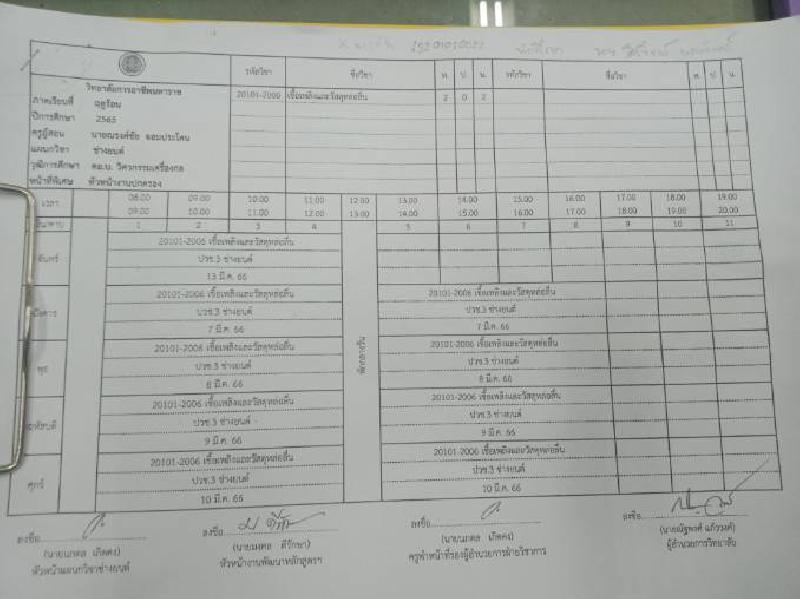 รหัสวิชา ชื่อวิชา ท. ป. น. รหัสวิชา ชื่อวิชา ท. ป. น.
วิทยาลัยการอาชีพมหาราช
20101-2006 เชื้อเพลิงและวัสดุหล่อลื่น 2 0 2
ภาคเรียนที่ ฤดูร้อน
ปีการศึกษา 2565
ครูผู้สอน นายณรงค์ชัย
แผนกวิชา ช่างยนต์
วุฒิการศึกษา คอ.บ. วิศวกรรมเครื่องกล
หน้าที่พิเศษ หัวหน้างานปกครอง
เวลา 08.00 09.00 10.00 11.00 12.00 13.00 14.00 15.00 16.00 17.00 18.00 19.00
09.00 10.00 11.00 12.00 13.00 14.00 15.00 16.00 17.00 18.00 19.00 20.00
1 2 3 4 5 6 7 8 9 10 11
จันทร์
20101-2006 เชื้อเพลิงและวัสดุหล่อลื่น
ปวช.3 ช่างยนต์
13 มี.ค. 66
พักกลางวัน
20101-2006 เชื้อเพลิงและวัสดุหล่อลื่น 20101-2006 เชื้อเพลิงและวัสดุหล่อลื่น
ปวช.3 ช่างยนต์ ปวช.3 ช่างยนต์
7 มี.ค. 66 7 มี.ค. 66
พุธ
20101-2006 เชื้อเพลิงและวัสดุหล่อลื่น 20101-2006 เชื้อเพลิงและวัสดุหล่อลื่น
ปวช.3 ช่างยนต์ ปวช.3 ช่างยนต์
8 มี.ค. 66 8 มี.ค. 66
20101-2006 เชื้อเพลิงและวัสดุหล่อลื่น 20101-2006 เชื้อเพลิงและวัสดุหล่อลื่น
ปวช.3 ช่างยนต์ ปวช.3 ช่างยนต์
9 มี.ค. 66 9 มี.ค. 66
ศุกร์
20101-2006 เชื้อเพลิงและวัสดุหล่อลื่น 20101-2006 เชื้อเพลิงและวัสดุหล่อลื่น
ปวช.3 ช่างยนต์ ปวช.3 ช่างยนต์
10 มี.ค. 66 10 มี.ค. 66
ลงชื่อ ลงชื่อ ลงชื่อ ลงชื่อ
(นายนภดล เกิดคง) (นายมงคล ดีรักษา) (นายนภดล เกิดคง) (นายณัฐพงศ์ แก้ววงศ์)
หัวหน้าแผนกวิชาช่างยนต์ หัวหน้างานพัฒนาหลักสูตรฯ ครูทำหน้าที่รองผู้อำนวยการฝ่ายวิชาการ ผู้อำนวยการวิทยาลัย